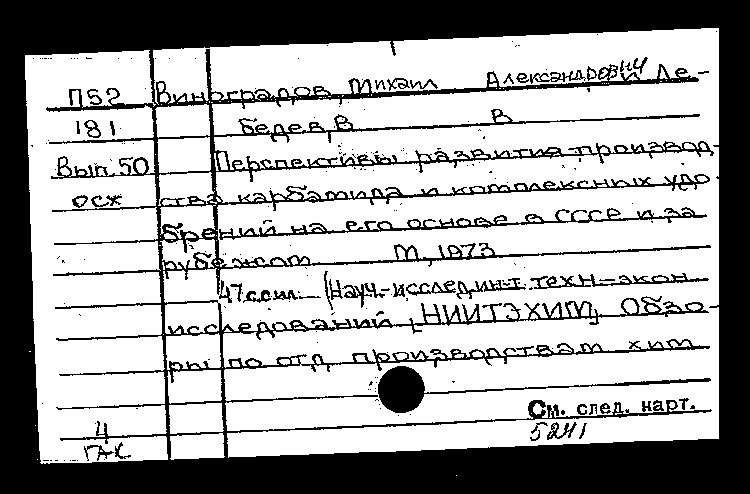 П52 Виноградов, Михаил Александрович Ле-
181 бедев, В В
Вып.50 Перспективы развития производ-
осх ства карбамида и комплексных удо-
брений на его основе в СССР и за
рубежом М., 1973
47с.ил. (Науч.-исслед.ин-т. техн.-экон
исследований [НИИТЭХИМ]. Обзо-
ры по отд производствам хим
См. след. карт.
4 5241
ГАК